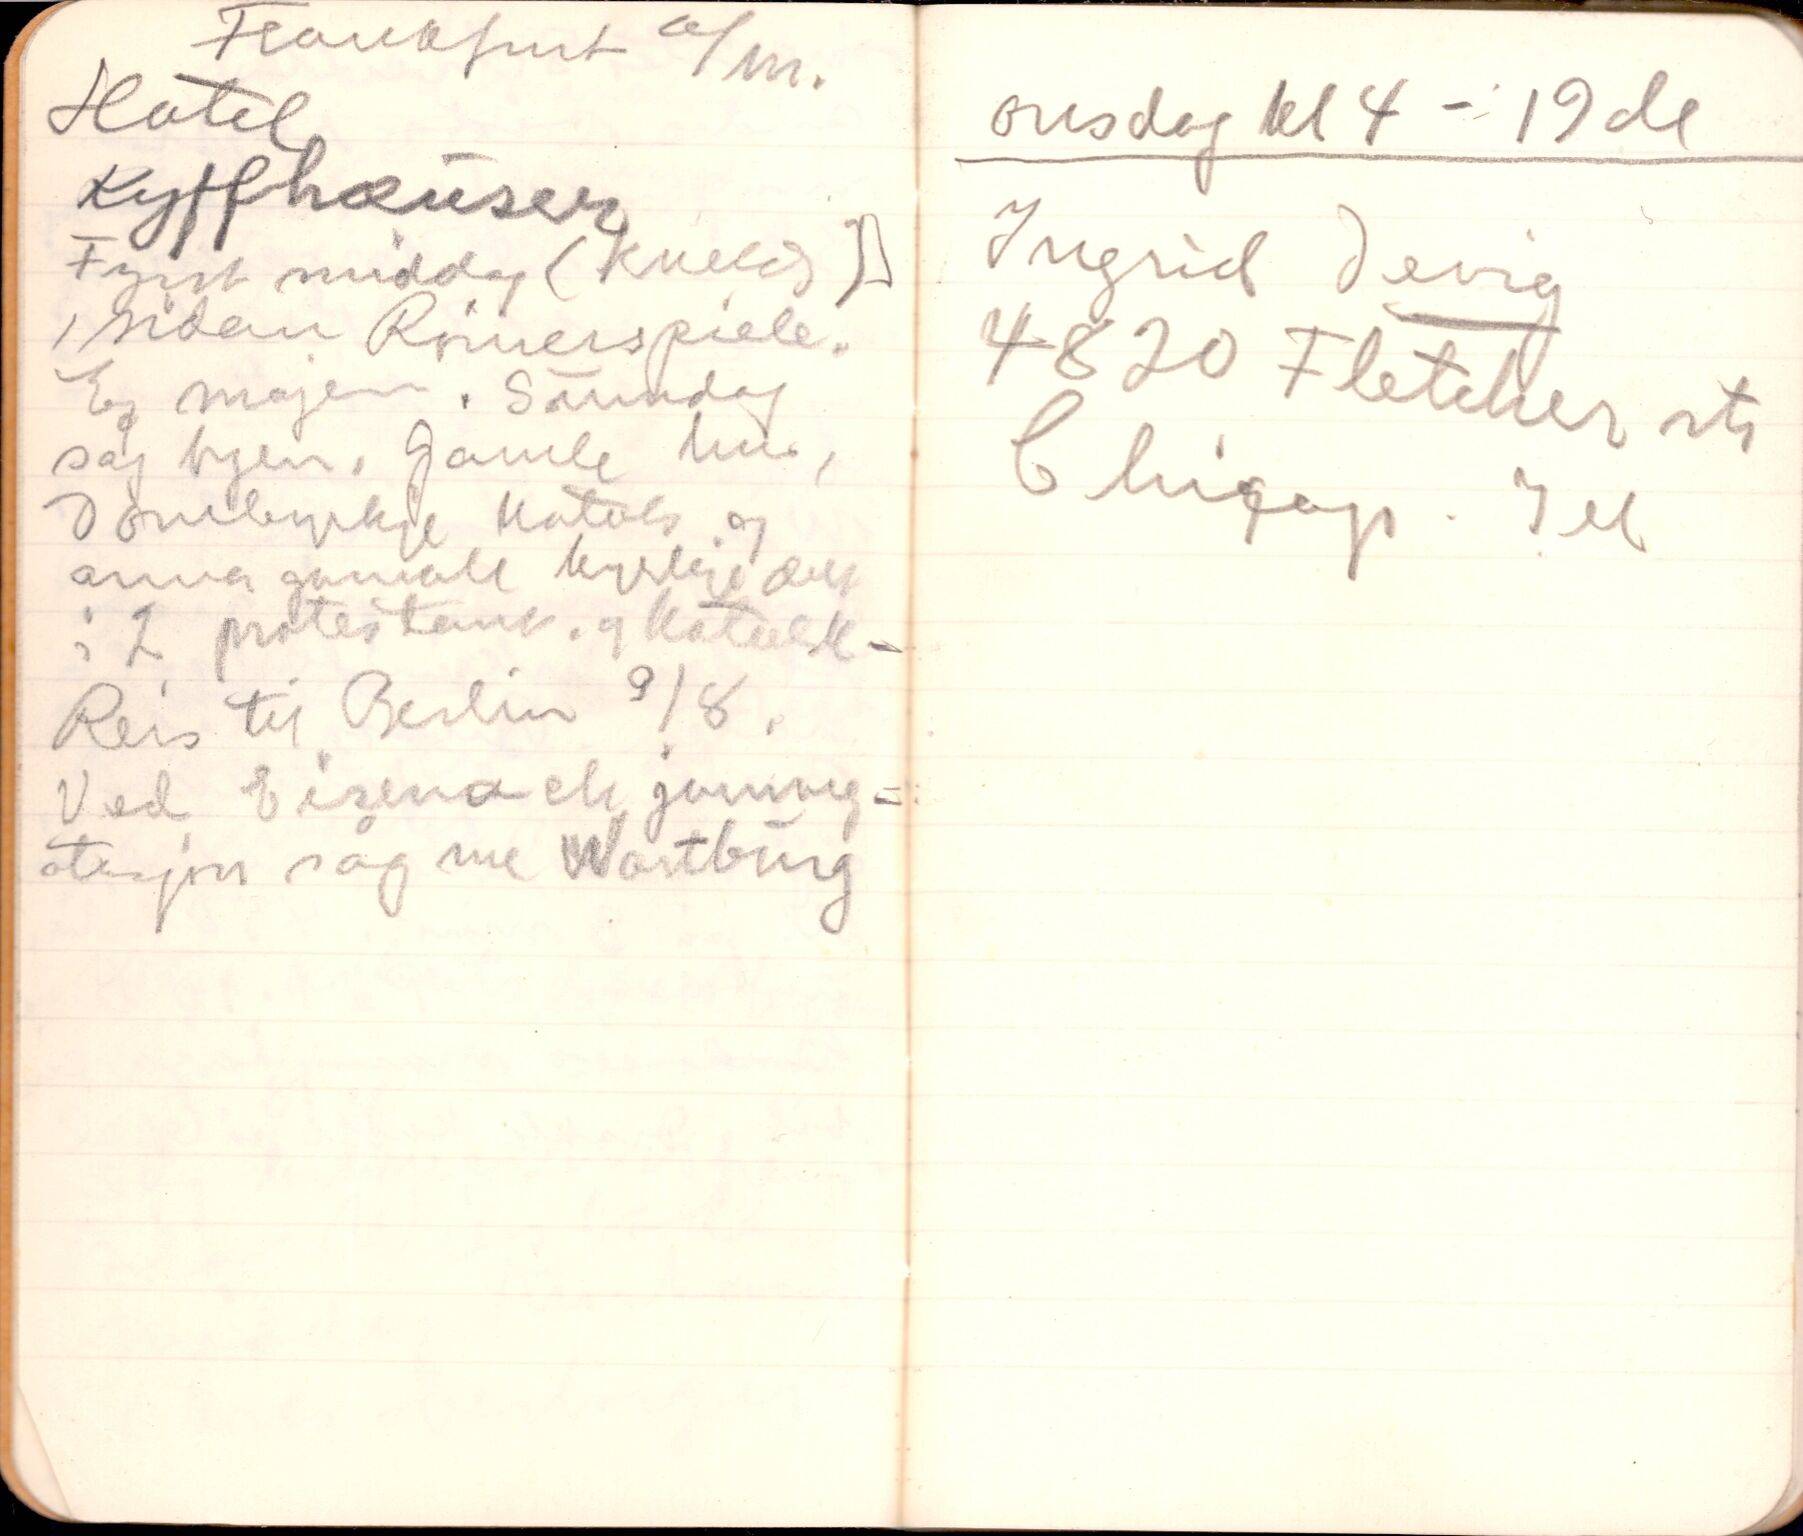 Frankfurt a/m.
Hotel
Kyffhæuser
Fyrst middag (Kuelds)
, sidan Römerspiele.
Eg mojen. Sunndag
såg byen. Gamle hus,
Domkyrkje katols og
anna gamall kyrkje delt
i 2 protestant. og Katolsk-
Reis til Berlin 9/8.
Ved Eisenach jarnveg-
stasjon såg me Wartburg
onsdag kl 4 - 19 de
Ingrid Devig
4820 Fletcher str
Chicago. Ill